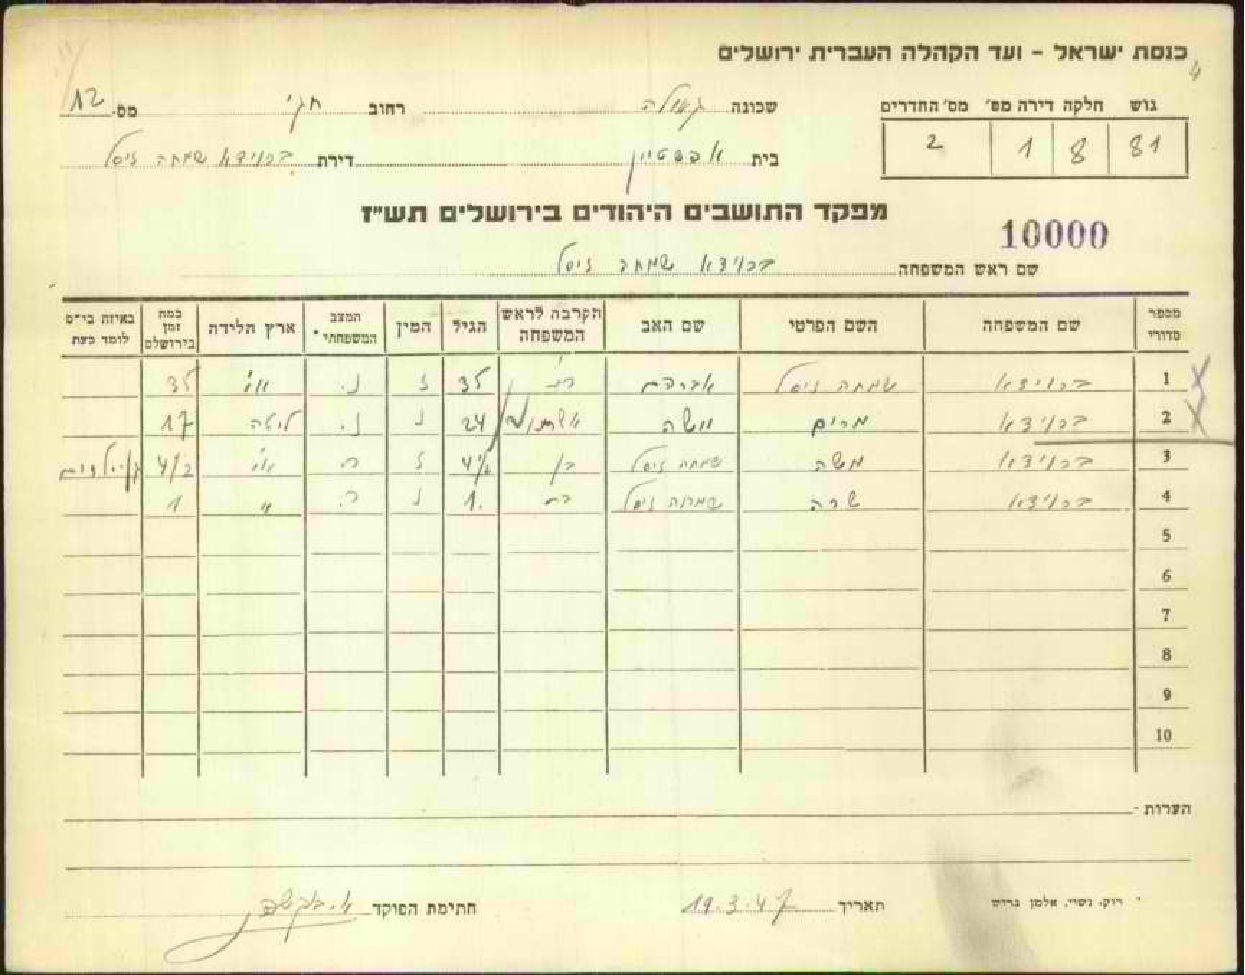 כנסת ישראל - ועד הקהלה העברית ירושלים
גוש חלקה דירה מס׳ מס׳ החדרים
81 8 1 2
שכונה גאולה רחוב חגי מס. 12
בית אפשטיין דירת ברוידא שמחה זיסל
מפקד התושבים היהודים בירושלים תש״ז
10000
שם ראש המשפחה ברוידא שמחה זיסל
מספר סדורי שם המשפחה השם הפרטי שם האב הקרבה לראש המשפחה הגיל המין המצב המשפחתי* ארץ הלידה כמה זמן בירושלם באיזה בי״ס לומד כעת
1 ברוידא שמחה זיסל אברהם 35 ז נ. א״י 35
2 ברוידא מרים משה אשתו 24 נ נ. ליטה 17
3 ברוידא משה שמחה זיסל בן 4½ ז ר. א״י 4/2 גן ילדים
4 ברוידא שרה שמחה זיסל בת 1. נ ר. " 1
5
6
7
8
9
10
הערות -
תאריך 19.3.47 חתימת הפוקד
דוק. גשר, אלמן גריש